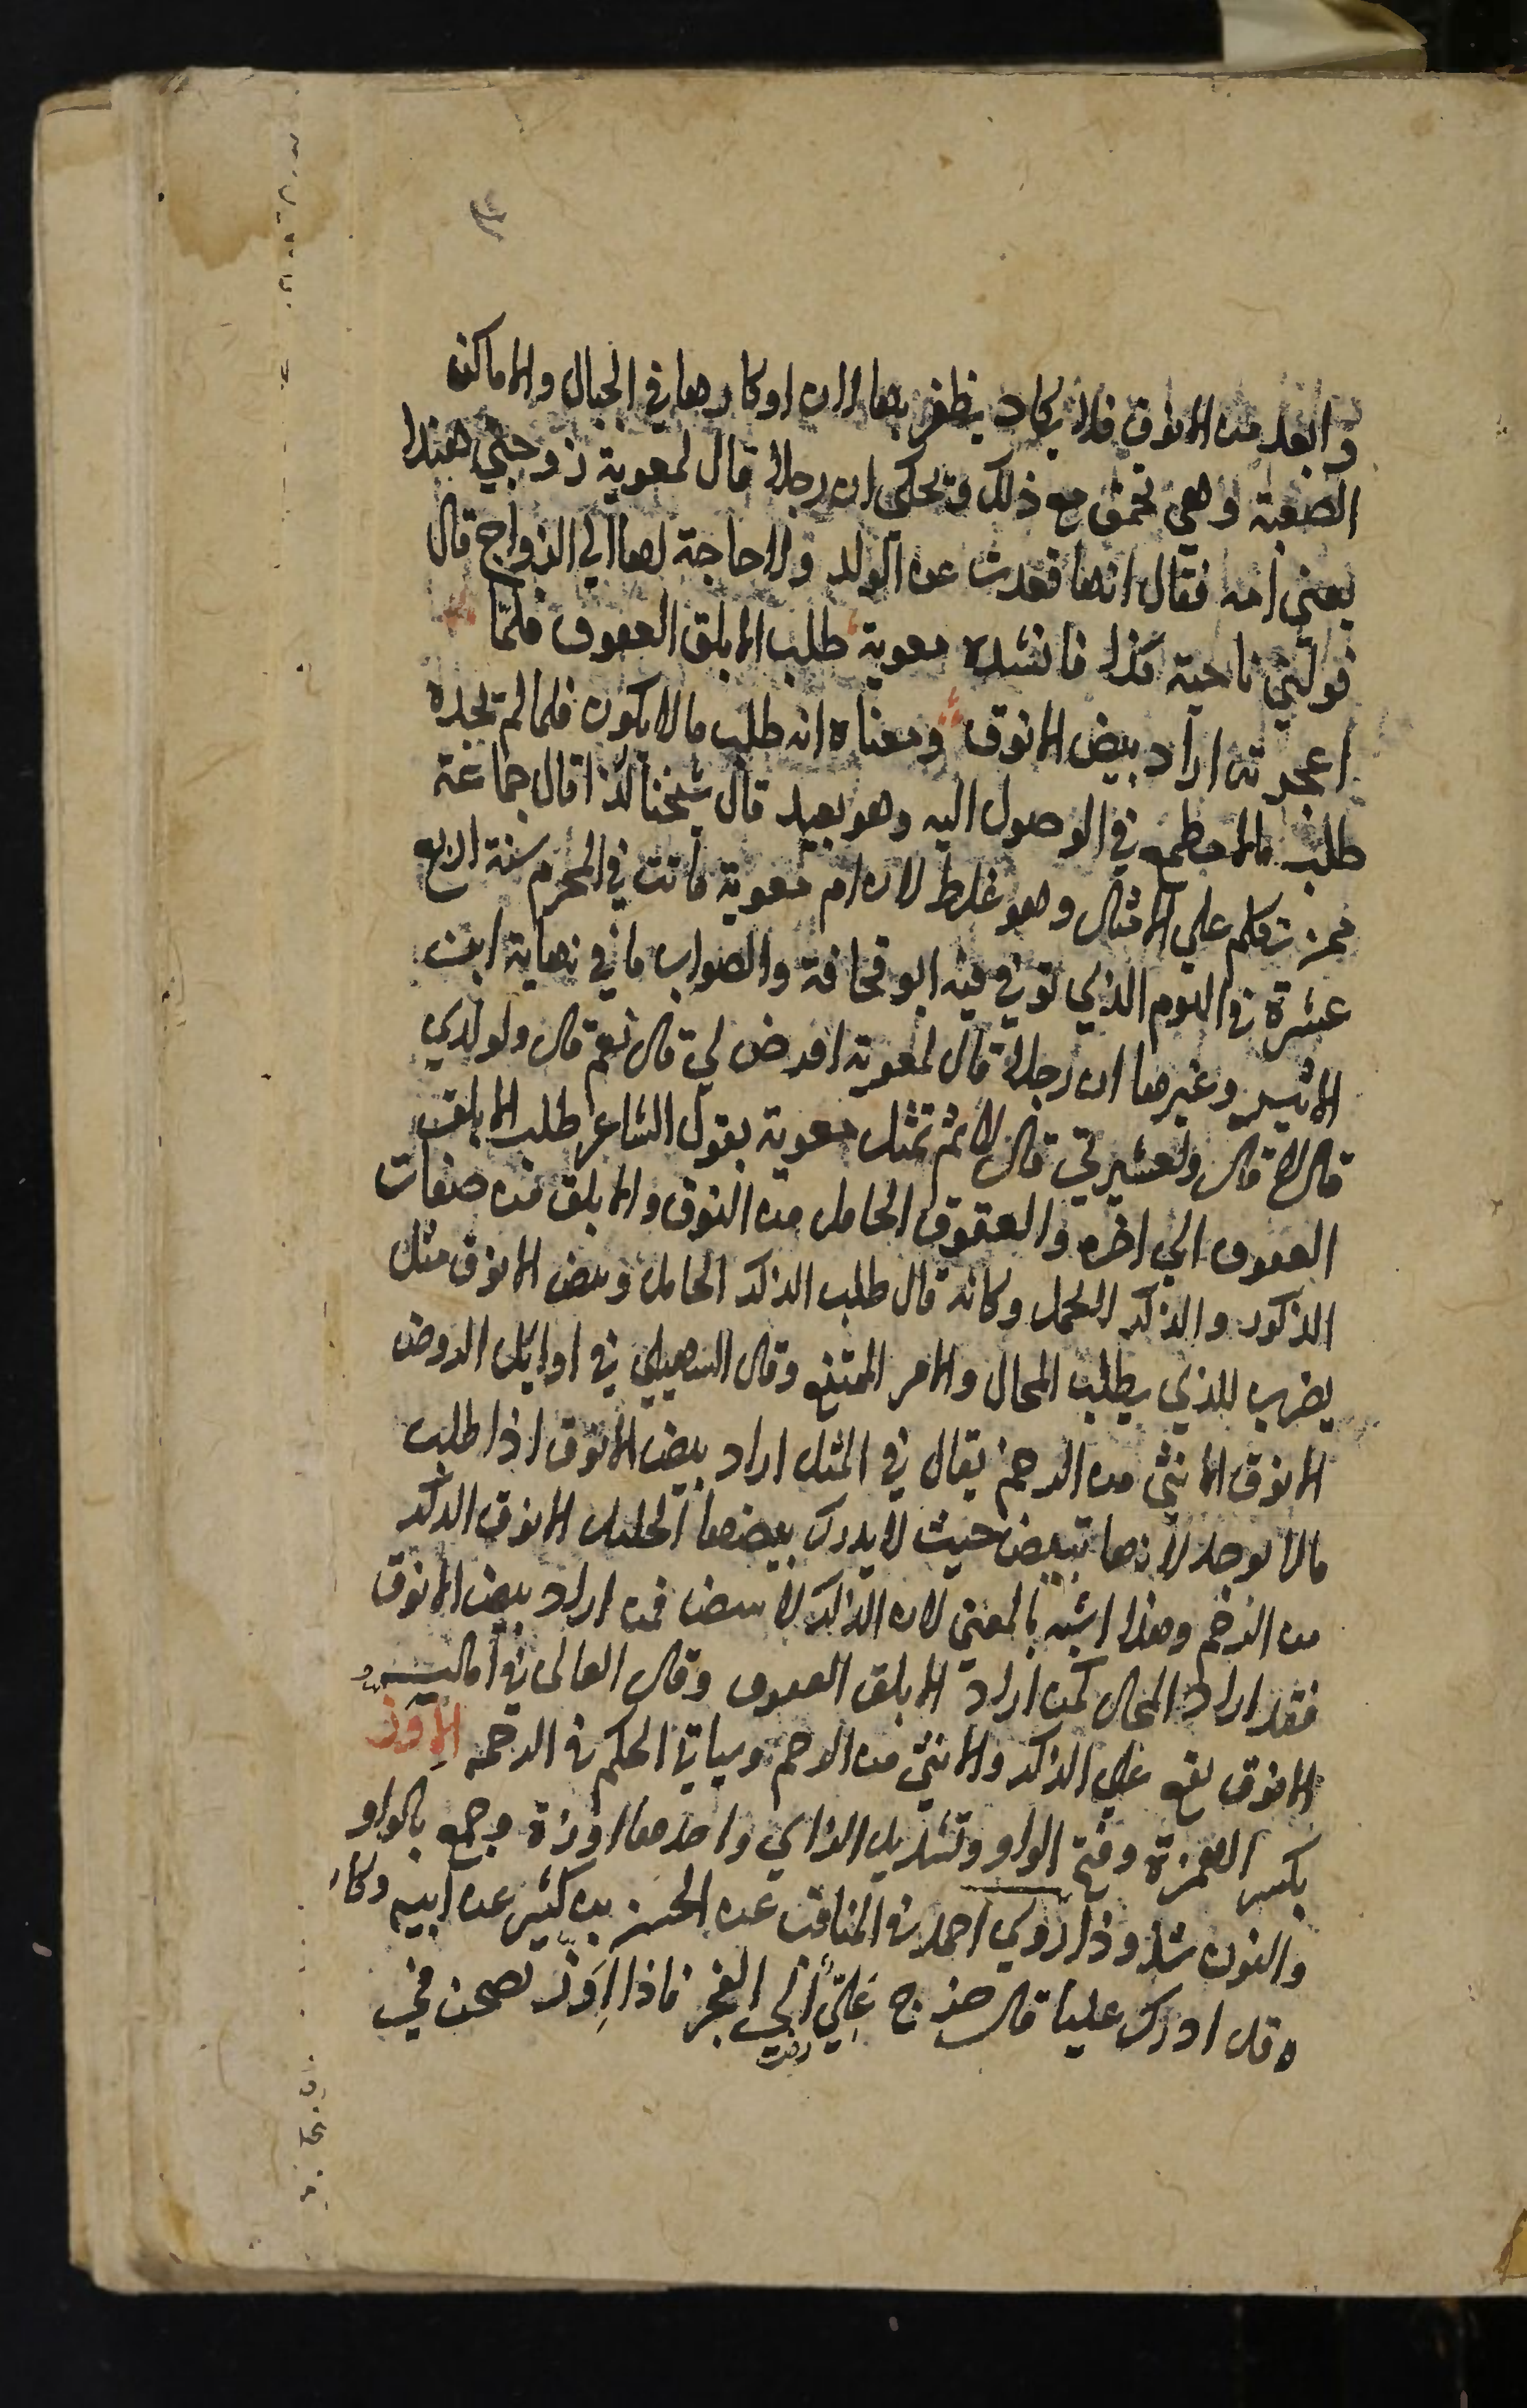 وابعد من الانوق فلا يكاد يظفر بها لان اوكارها في الجبال والاماكن
الصعبة وهي تحمق مع ذلك ويحكي ان رجلا قال لمعوية زوجني هندا
يعني امه فقال انها قعدت عن الولد ولا حاجة لها الي الزواج قال
فولني ناحية كذا فانشده معوية طلب الابلق العقوق فلمّا
اعجزته اراد بيض الانوق ومعناه انه طلب ما لا يكون فلما لم يجده
طلب مالا مطمع في الوصول اليه وهو بعيد قال شيخنا كذا قال جماعة
ممن تكلم علي الامثال وهو غلط لان ام معوية ماتت في المحرم سنة اربع
عشرة في اليوم الذي توفي فيه ابو قحافة والصواب ما في نهاية ابن
الاثير وغيرها ان رجلا قال لمعوية افرض لي قال نعم قال ولولدي
قال لا قال ولعشيرتي قال لا ثم تمثل معوية بقول الشاعر طلب الابلق
العقوق الي اخره والعقوق الحامل من النوق والابلق من صفات
الذكور والذكر لا يحمل وكانه قال طلب الذكر الحامل وبيض الانوق مثل
يضرب للذي يطلب المحال والامر الممتنع وقال السهيلي في اوايل الروض
الانوق الانثي من الرخم يقال في المثل اراد بيض الانوق اذا طلب
مالا يوجد لانها تبيض حيث لا يدرك بيضها الخليل الانوق الذكر
من الرخم وهذا اشبه بالمعني لان الذكر لا يبيض فمن اراد بيض الانوق
فقد اراد المحال كمن اراد الابلق العقوق وقال القالي في اماليه
الانوق يقع علي الذكر والانثي من الرخم وياتي الحكم في الرخمه الاِوَز
بكسر الهمزة وفتح الواو وتشديد الزاي واحدها اوزة وجمع بالواو
والنون شذوذا روي احمد في المناقب عن الحسن بن كثير عن ابيه وكا
ه قد ادرك عليا قال خرج عَلِيّ الي الفجر فاذا اِوَز تصحن في